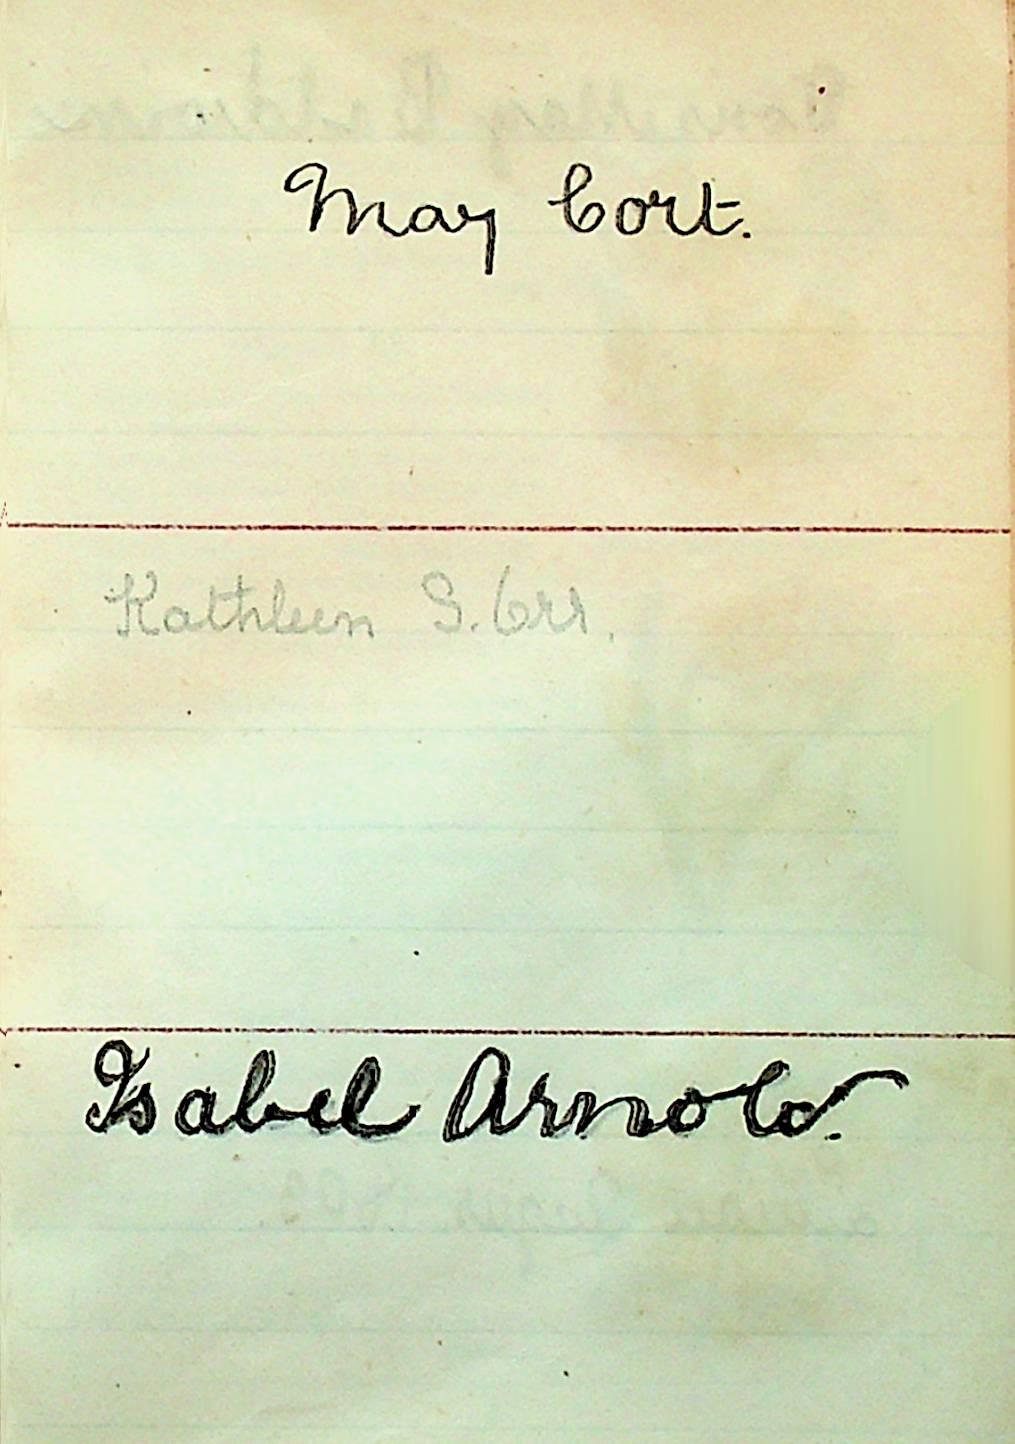 May Cort.
Kathleen S. Orr.
Isabel Arnold.